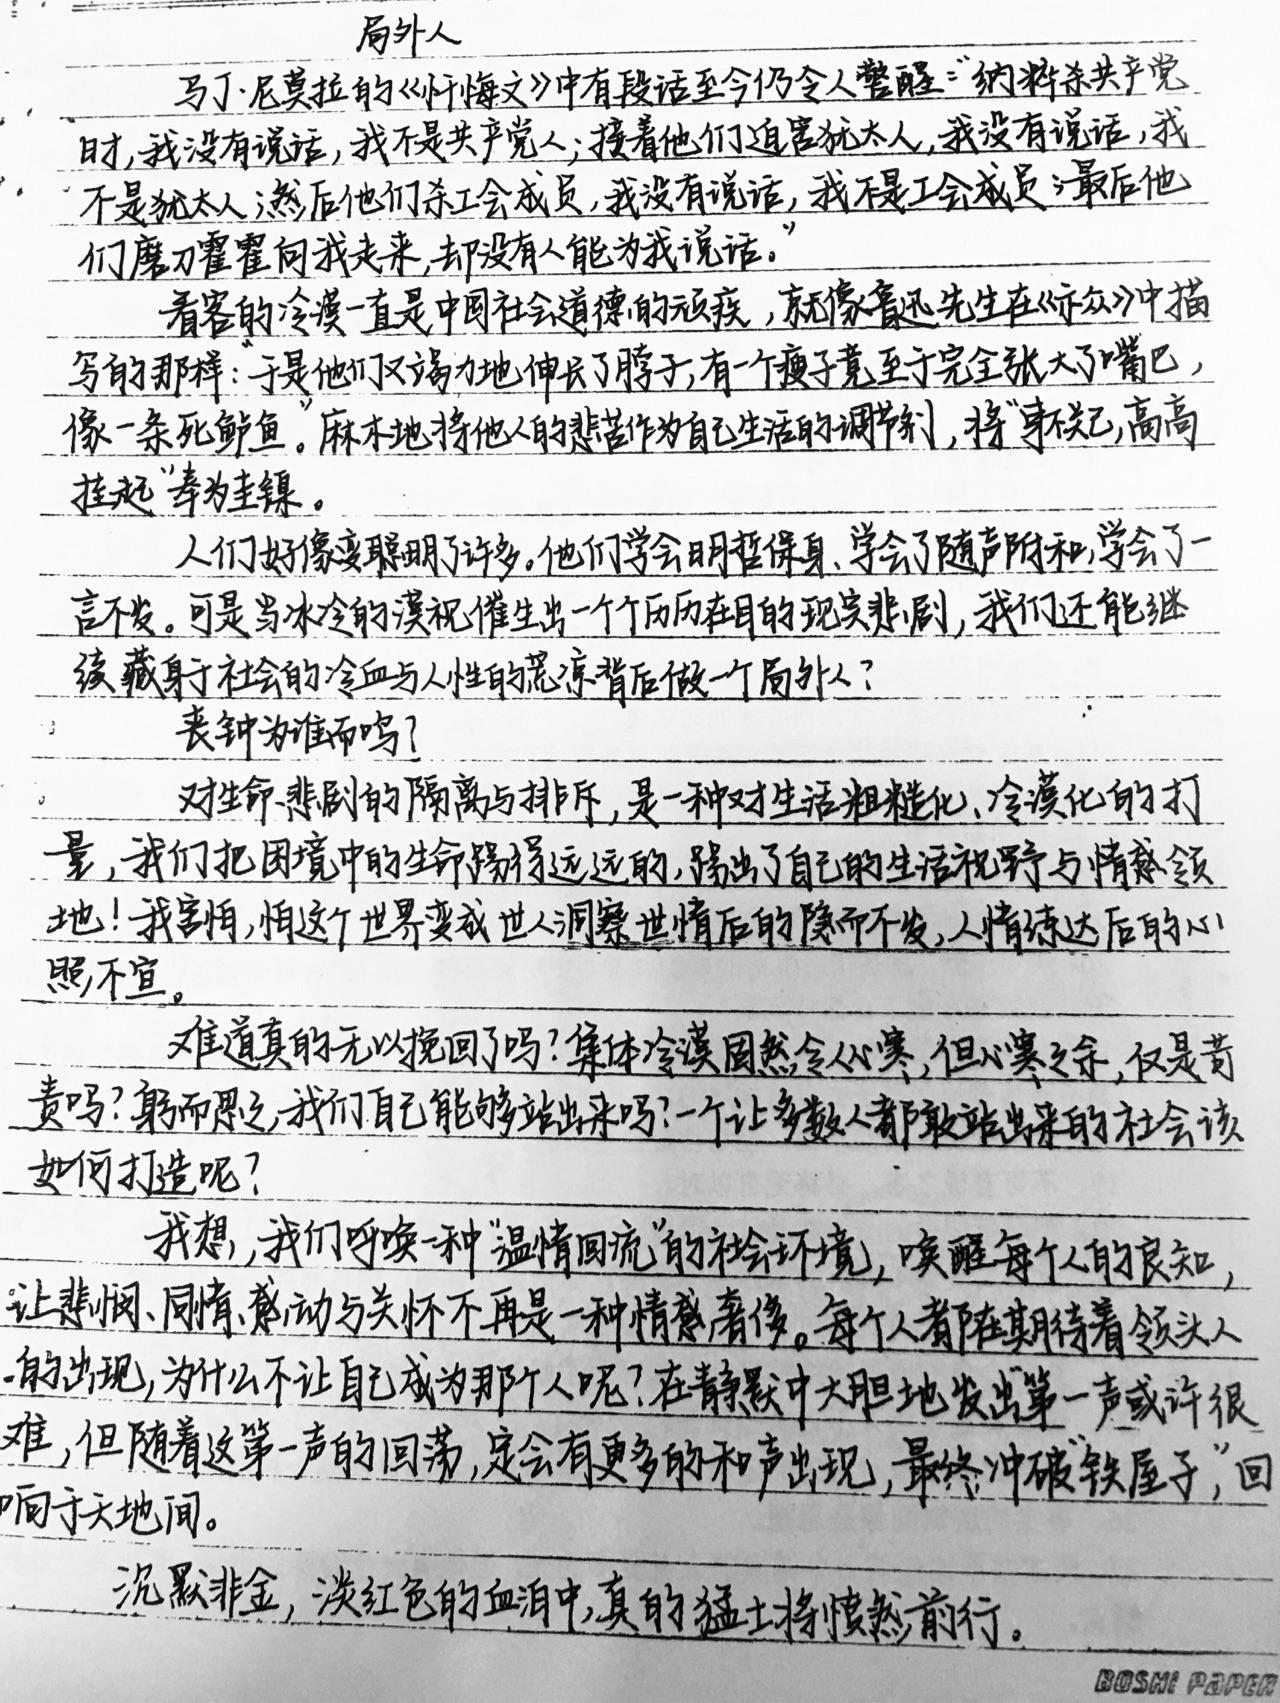 局外人
马丁·尼莫拉的《忏悔文》中有段话至今仍令人警醒："纳粹杀共产党
时,我没有说话,我不是共产党人;接着他们迫害犹太人,我没有说话,我
不是犹太人;然后他们杀工会成员,我没有说话,我不是工会成员;最后他
们磨刀霍霍向我走来,却没有人能为我说话。"
看客的冷漠一直是中国社会道德的顽疾,就像鲁迅先生在《示众》中描
写的那样："于是他们又竭力地伸长了脖子,有一个瘦子竟至于完全张大了嘴巴,
像一条死鲈鱼。"麻木地将他人的悲苦作为自己生活的调节剂,将"事不关己,高高
挂起"奉为圭镍。
人们好像变聪明了许多。他们学会明哲保身、学会了随声附和,学会了一
言不发。可是当冰冷的漠视催生出一个个历历在目的现实悲剧,我们还能继
续藏身于社会的冷血与人性的荒凉背后做一个局外人?
丧钟为谁而鸣?
对生命悲剧的隔离与排斥,是一种对生活粗糙化、冷漠化的打
量,我们把困境中的生命踢得远远的,踢出了自己的生活视野与情感领
地!我害怕,怕这个世界变成世人洞察世情后的隐而不发,人情练达后的心
照不宣。
难道真的无以挽回了吗?集体冷漠固然令人心寒,但心寒之余,仅是苛
责吗?躬而思之,我们自己能够站出来吗?一个让多数人都敢站出来的社会该
如何打造呢?
我想,我们呼唤一种"温情回流"的社会环境,唤醒每个人的良知,
让悲悯、同情、感动与关怀不再是一种情感奢侈。每个人都在期待着领头人
的出现,为什么不让自己成为那个人呢?在静默中大胆地发出"第一声"或许很
难,但随着这第一声的回荡,定会有更多的和声出现,最终冲破"铁屋子",回
响于天地间。
沉默非金,淡红色的血泊中,真的猛士将愤然前行。
BOSHI PAPER